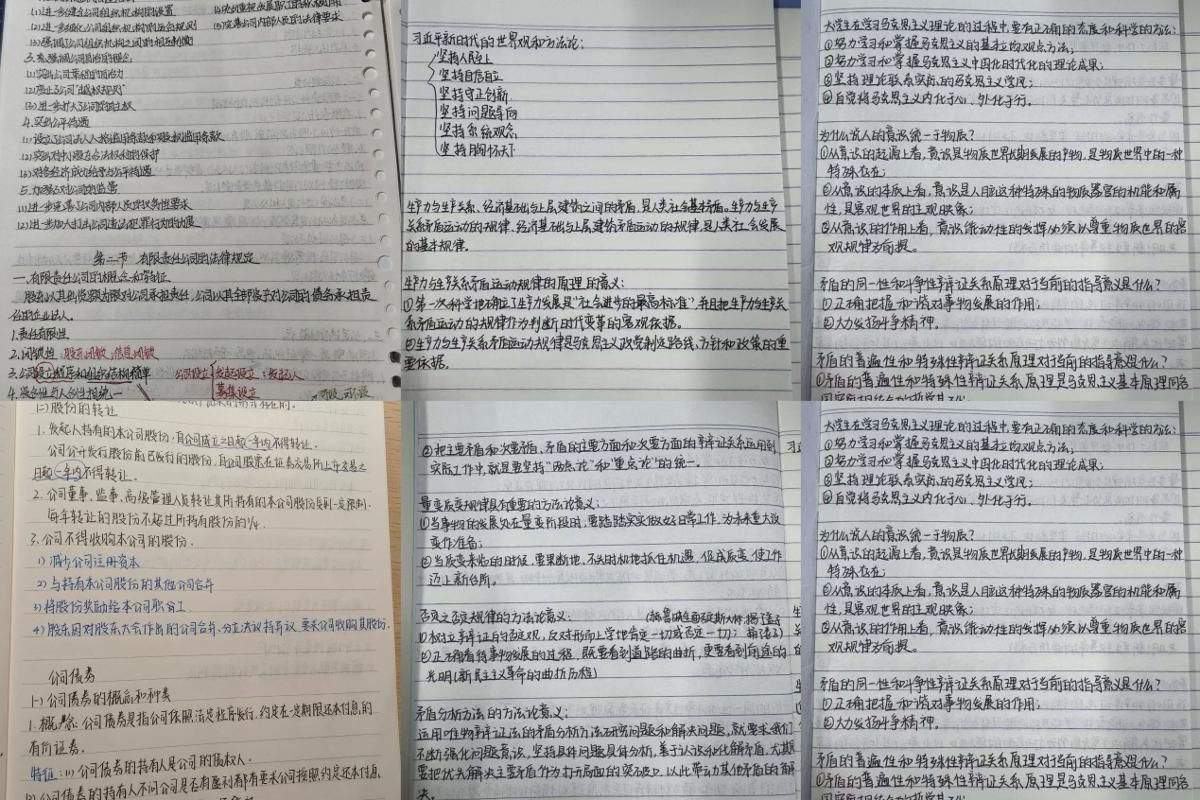 (1)进一步健全公司组织机构的设置
(2)进一步细化公司组织机构的运行规则
(3)强调公司组织机构之间的相互制衡
(5)完善公司内部人员的法律要求
3.
(1)突出公司章程的自治力
(2)废止公司"越权规则"
(3)进一步扩大公司的自主权
4.突出公平待遇
(1)设立了公司法人人格滥用禁止和股权滥用禁止
(2)突出对小股东合法权利的保护
(3)对各经济成份给予公平待遇
5.加强对公司的监管
(1)进一步完善公司内部人员的义务性要求
(2)进一步加大打击公司违法犯罪行为的力度
第二节 有限责任公司的法律规定
一.有限责任公司的概念和特征
股东以其出资额为限对公司承担责任,公司以其全部资产对公司的债务承担责
任的企业法人。
1.责任有限性
2.闭锁性:股东闭锁、信息闭锁
3.公司设立程序和组织结构简单
公司设立 发起设立:发起人
募集设立
习近平新时代的世界观和方法论:
坚持人民至上
坚持自信自立
坚持守正创新
坚持问题导向
坚持系统观念
坚持胸怀天下
生产力与生产关系、经济基础与上层建筑之间的矛盾,是人类社会基本矛盾。生产力与生产
关系矛盾运动的规律、经济基础与上层建筑矛盾运动的规律,是人类社会发展
的基本规律。
生产力与生产关系矛盾运动规律的原理的意义:
①第一次科学地确立了生产力发展是"社会进步的最高标准",并且把生产力生产关
系矛盾运动的规律作为判断时代变革的客观依据。
②生产力与生产关系矛盾运动规律是马克思主义政党制定路线、方针和政策的重
要依据。
大学生在学习马克思主义理论的过程中,要有正确的态度和科学的方法:
①努力学习和掌握马克思主义的基本立场观点方法;
②努力学习和掌握马克思主义中国化时代化的理论成果;
③坚持理论联系实际的马克思主义学风;
④自觉将马克思主义内化于心、外化于行。
为什么说人的意识统一于物质?
①从意识的起源上看,意识是物质世界长期发展的产物,是物质世界中的一种
特殊存在;
②从意识的本质上看,意识是人脑这种特殊的物质器官的机能和属
性,是客观世界的主观映象;
③从意识的作用上看,意识能动性的发挥必须以尊重物质世界的客
观规律为前提。
矛盾的同一性和斗争性辩证关系原理对当前的指导意义是什么?
①正确把握和谐对事物发展的作用;
②大力发扬斗争精神。
矛盾的普遍性和特殊性辩证关系原理对当前的指导意义是什么?
①矛盾的普遍性和特殊性辩证关系原理是马克思主义基本原理同各
(二)股份的转让
1.发起人持有的本公司股份,自公司成立之日起一年内不得转让.
公司公开发行股份前已发行的股份,自公司股票在证券交易所上市交易之
日起一年内不得转让.
2.公司董事、监事、高级管理人员转让其所持有的本公司股份受到一定限制.
每年转让的股份不超过所持有股份的1/4.
3.公司不得收购本公司的股份.
1)减少公司注册资本
2)与持有本公司股份的其他公司合并
3)将股份奖励给本公司职工
4)股东因对股东大会作出的公司合并、分立决议持异议,要求公司收购其股份.
公司债券
(一)公司债券的概念和种类
1.概念:公司债券是指公司依照法定程序发行,约定在一定期限还本付息的
有价证券.
特征:(1)公司债券的持有人是公司的债权人.
2)公司债券的持有人不问公司是否有盈利都有要求公司按照约定还本付息,
②把主要矛盾和次要矛盾、矛盾的主要方面和次要方面的辩证关系运用到
实际工作中,就是要坚持"两点论"和"重点论"的统一。
量变质变规律具有重要的方法论意义:
①当事物的发展处在量变阶段时,要踏踏实实做好日常工作,为未来重大改
变作准备;
②当质变来临的时候,要果断地、不失时机地抓住机遇,促成质变,使工作
迈上新台阶。
否定之否定规律的方法论意义:
①树立辩证的否定观,反对形而上学地肯定一切或否定一切;
②正确看待事物发展的过程,既要看到道路的曲折,更要看到前途的
光明(新民主主义革命的曲折历程)
矛盾分析方法的方法论意义:
运用唯物辩证法的矛盾分析方法研究问题和解决问题,就要求我们
不断强化问题意识,坚持具体问题具体分析,善于认识和化解矛盾,尤其
要把优先解决主要矛盾作为打开局面的突破口,以此带动其他矛盾的解
决。
大学生在学习马克思主义理论的过程中,要有正确的态度和科学的方法:
①努力学习和掌握马克思主义的基本立场观点方法;
②努力学习和掌握马克思主义中国化时代化的理论成果;
③坚持理论联系实际的马克思主义学风;
④自觉将马克思主义内化于心、外化于行。
为什么说人的意识统一于物质?
①从意识的起源上看,意识是物质世界长期发展的产物,是物质世界中的一种
特殊存在;
②从意识的本质上看,意识是人脑这种特殊的物质器官的机能和属
性,是客观世界的主观映象;
③从意识的作用上看,意识能动性的发挥必须以尊重物质世界的客
观规律为前提。
矛盾的同一性和斗争性辩证关系原理对当前的指导意义是什么?
①正确把握和谐对事物发展的作用;
②大力发扬斗争精神。
矛盾的普遍性和特殊性辩证关系原理对当前的指导意义是什么?
①矛盾的普遍性和特殊性辩证关系原理是马克思主义基本原理同各